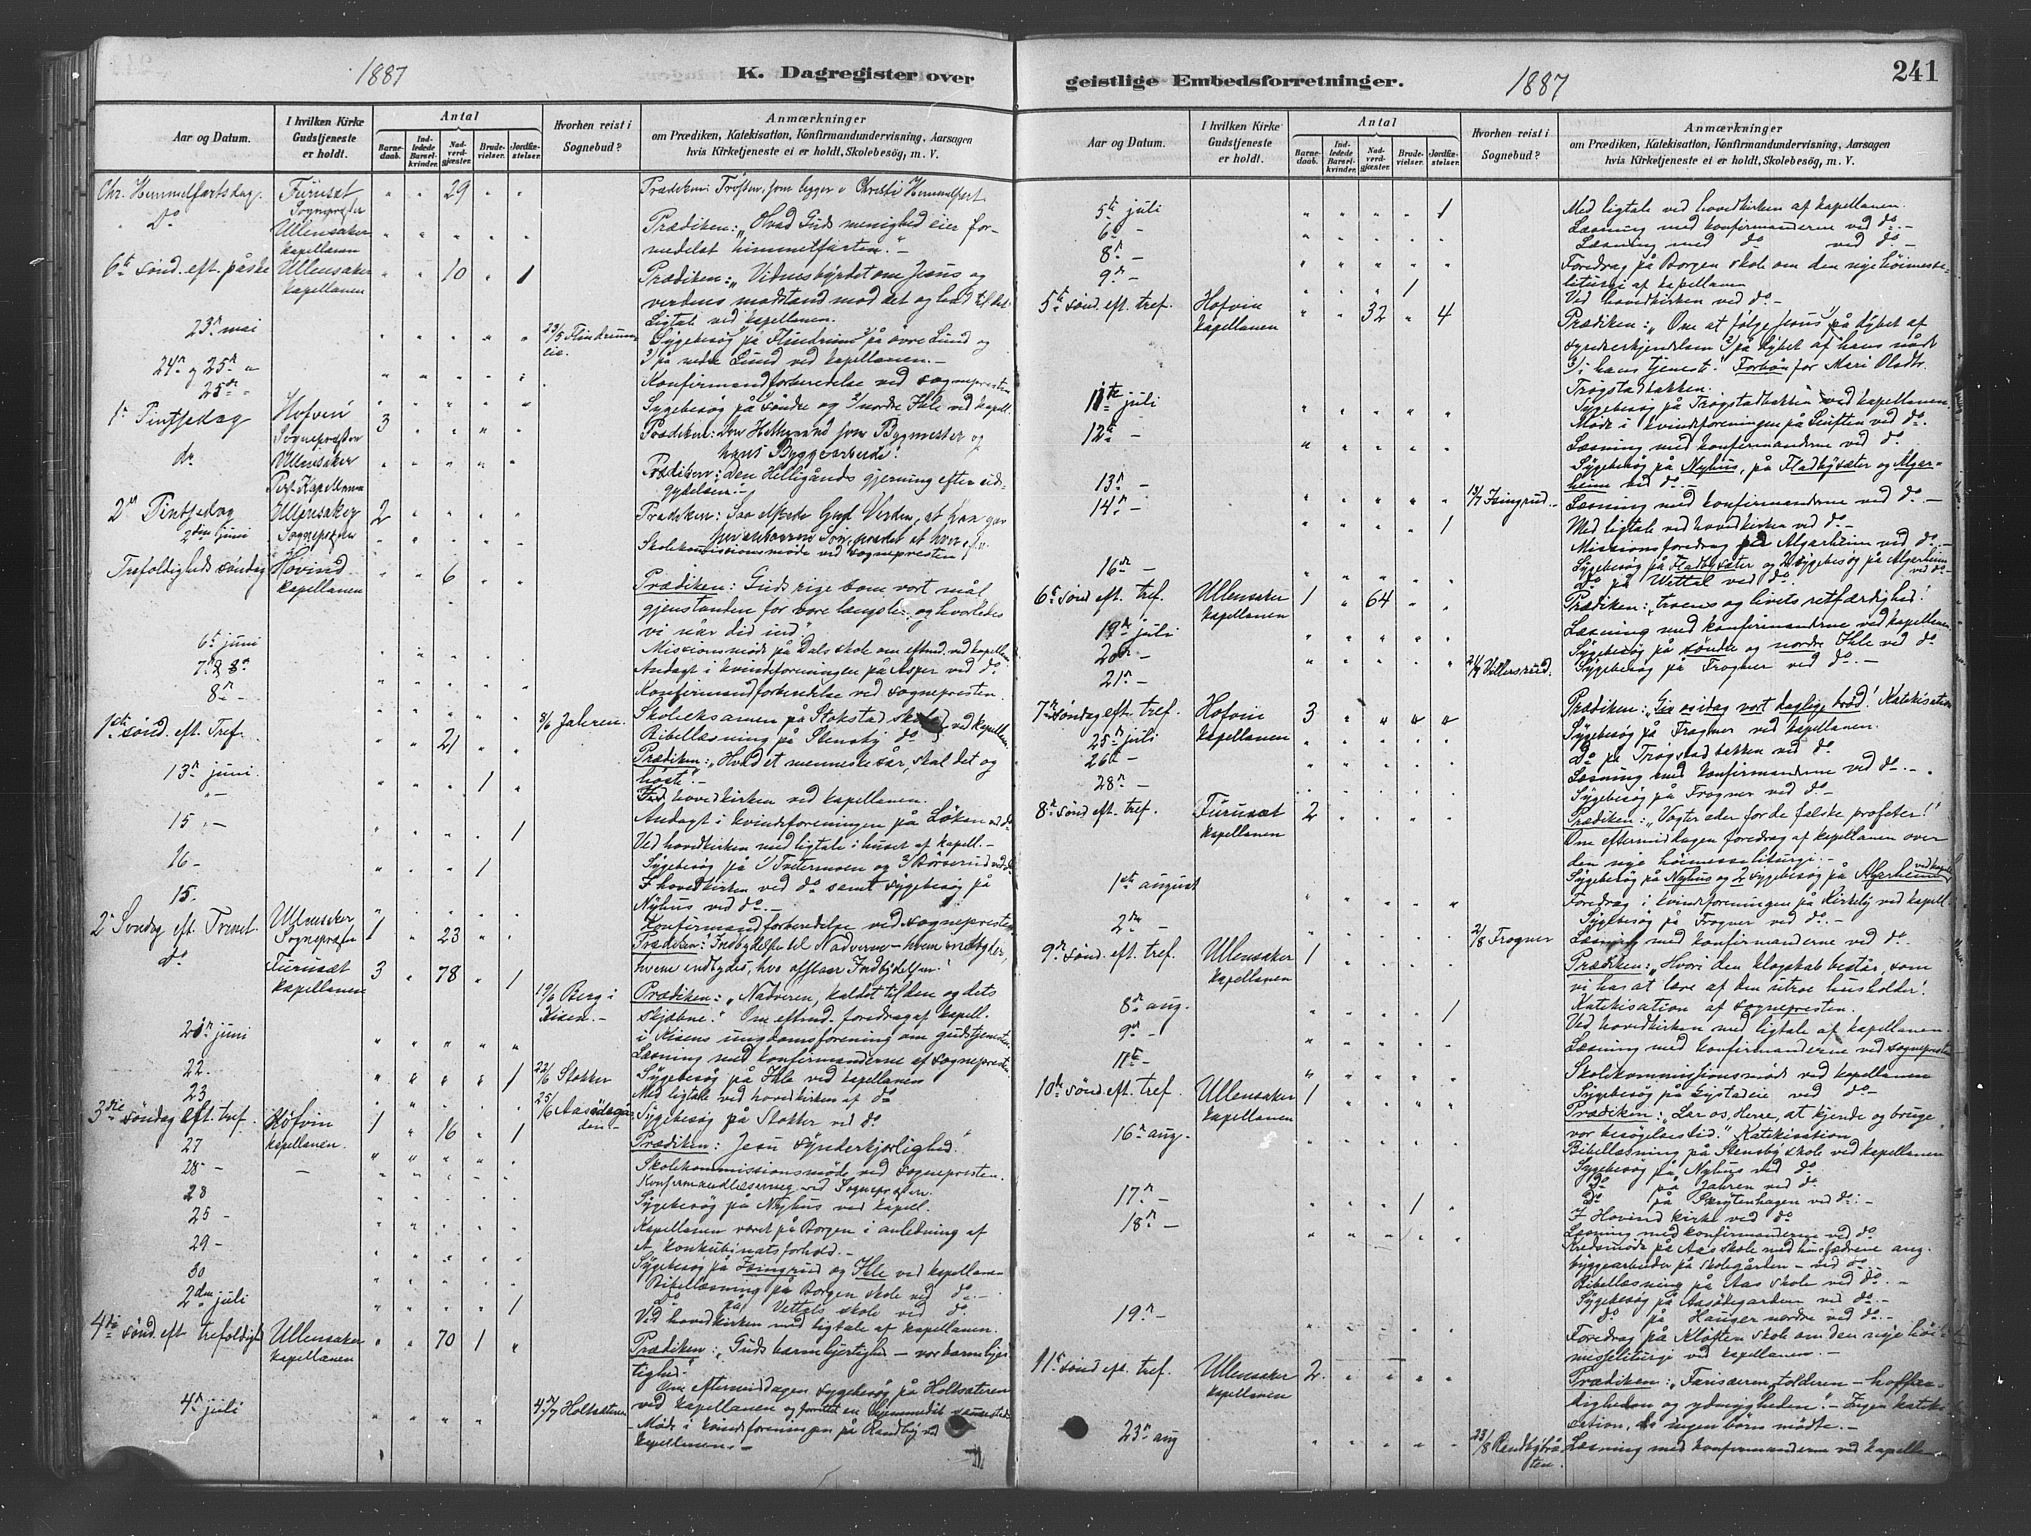 1887
K. Dagregister over
Aar og Datum.
I hvilken Kirke Gudstjeneste er holdt.
Antal
Barnedaab.
Indledede Barselkvinder.
Nadverdgjæster.
Brudevielser.
Jordfæstelser.
Hvorhen reist i Sognebud?
Anmærkninger
om Prædiken, Katekisation, Konfirmandundervisning, Aarsagen
hvis Kirketjeneste ei er holdt, Skolebesög, m. V.
Chr. Himmelfartsdag. Furuset 29 Prædiken: Trøsten, som ligger i Christi Himmelfart
Sognepræsten
Do Ullensaker Prædiken: „Hvad Guds menighed eier for-
kapellanen medelst himmelfarten.“ -
6te sønd. eft. påske Ullensaker 10 1 Prædiken: „Vidnesbyrdet om Jesus og
kapellanen verdens modstand mod det og
Ligtale ved kapellanen.
23n mai 23/5 Sygebesøg på på øvre Lund og
på nedre Lund ved kapellanen. -
24n og 25n Konfirmandforberedelse ved sognepresten
25de Sygebesøg på søndre og nordre Ihle ved kapell.
1n Pintsedag Hofvin 3 Prædiken: Den Helligaand som Bygmester og
Sognepræsten hans Byggearbeide!
do Ullensaker Prædiken: Den Helligånds gjerning efter uds-
Kapellanen gydelsen! -
2n Pintsedag Ullensaker 2 Prædiken: Saa elskede Gud Verden, at han gav
2den juni Sognepræsten Skolekommissionsmøde ved sognepresten
Trefoldigheds søndag Hovind 6 Prædiken: Guds rige som vort mål
kapellanen gjenstanden for vore længsler og hvorledes
vi når did ind.“
6te juni Missionsmøde på Dals skole om eftmd. ved kapell.
7n & 8n Andagt i kvindeforeningen på Asper ved do
8n Konfirmandforberedelse ved sognepresten.
8/6 Jahren. Skoleeksamen på Stokstad skole ved kapellan.
1ste sønd. eft. Tref. 21 Bibellæsning på Stensby do
Prædiken: „Hvad et menneske sår, skal det og
høste“. -
13n juni. 1 Ved hovedkirken ved kapellanen.
Andagt i kvindeforeningen på Løken ved do
15 - 1 Ved hovedkirken med ligtale i huset af kapell. -
16 - 1 Sygebesøg på og Børserud ved do
I hovedkirken ved do samt sygebesøg på
15. Nyhus ved do. -
Konfirmandforberedelse ved sognepresten
2n Søndag eft. Trinit. Ullensaker 1 23 Prædiken: Indbydelse til Nadveren - hvem indbyder,
Sognepræsten hvem indbydes, hvo afslaar Indbydelsen!
do Furusæt 3 78 1 19/6 Berg i Prædiken: „Nadveren, kaldet til den og dets
kapellanen Kisen. - skjæbne“. Om eftmd. foredrag af kapell.
21n juni i Kisens ungdomsforening om gudstjenesten.
Læsning med konfirmanderne af sognepresten
22. 1 22/6 Stokker Sygebesøg på Ihle ved kapellanen
23 25/6 Aasødegår- Med ligtale ved hovedkirken af do
den. - Sygebesøg på Stokker ved do
3die søndag eft. tref. Hofvin 1 16 1 Prædiken: Jesu Synderkjærlighed.“
27 kapellanen. Skolekommissionsmøde ved sognepresten.
28 - Konfirmandlæsning ved Sognepræsten.
28 Sygebesøg på Nyhus ved kapell.
25 - Kapellanen været på Borgen i anledning af
29 - et konkubinatsforhold. -
30 Sygebesøg på Isingrud og Ihle ved kapellanen
Bibellæsning på Borgen skole ved do. -
2den juli 1 Do på Vettals skole ved do.
Ved hovedkirken med ligtale af kapellanen.
4de sønd. eft trefoldigh. Ullensaker 70 1 Prædiken: „Guds barmhjertighed - vor barmhjer-
kapellanen tighed“.
Om eftermiddagen sygebesøg på Holtsæteren
4n juli 4/7 Holtsæteren ved kapellanen og
Møde i kvindeforeningen på Randby ved
kapellanen. -
geistlige Embedsforretninger.
1887
241
Aar og Datum.
I hvilken Kirke Gudstjeneste er holdt.
Antal
Barnedaab.
Indledede Barselkvinder.
Nadverdgjæster.
Brudevielser.
Jordfæstelser.
Hvorhen reist i Sognebud?
Anmærkninger
om Prædiken, Katekisation, Konfirmandundervisning, Aarsagen
hvis Kirketjeneste ei er holdt, Skolebesög, m. V.
5te juli 1 Med ligtale ved hovedkirken af kapellanen.
6te - Læsning med konfirmanderne ved do. -
8n - Læsning med do ved do -
9n - 1 Foredrag på Borgen skole om den nye høimesse-
liturgi af kapellanen
Ved hovedkirken ved do -
5te sønd. eft. tref. Hofvin 32 4 Prædiken: „Om at følge Jesus på dybet af
kapellanen synderkjendelsen på dybet af hans nåde
i hans tjeneste.“ Forbøn for Mari Olsdtr.
Trøgstadbakken.
11te juli Sygebesøg på Trøgstadbakken ved kapellanen.
Møde i kvindeforeningen på ved do.
12te - Læsning med konfirmanderne ved do
Sygebesøg på Nyhus, på Fladbysæter og Algar-
heim ved do. -
13n - 13/7 Isingrud. Læsning med konfirmanderne ved do -
14n - 1 Med ligtale ved hovedkirken ved do -
Missionsforedrag på Algarheim ved do. -
16de - Sygebesøg på Fladbysæter og 2 sygebesøg på Algarheim ved do -
Do på Wettal ved do.
6te sønd. eft. tref. Ullensaker 1 64 Prædiken: „troens og livets retfærdighed!
kapellanen Læsning med konfirmanderne ved kapellanen
19n juli Sygebesøg på søndre og nordre Ihle ved do
20de - 21/7 Villersrud. Sygebesøg på Frogner ved do. -
21n -
7n søndag eft. tref. Hofvin 3 Prædiken: „Giv os idag vort daglige brød! Katekisation
25n juli kapellanen Sygebesøg på Frogner ved kapellanen.
26te - Do på Trøgstadbakken ved do
28n - Læsning med konfirmanderne ved do. -
Sygebesøg på Frogner ved do -
8n sønd eft. tref. Furusæt 2 Prædiken: „Vogter eder for de falske profeter!“
kapellanen Om eftermiddagen foredrag af kapellanen over
den nye høimesseliturgi. -
1ste august Sygebesøg på Nyhus og 2 sygebesøg på Algarheim ved kapell.
Foredrag i kvindeforeningen på Kirkeby ved kapell. -
2den - 2/8 Frogner Sygebesøg på Frogner ved do. -
Læsning med konfirmanderne ved do. -
9n sønd. eft. tref. Ullensaker 1 Prædiken: „Hvori den klogskab består, som
kapellanen vi has at lære af den utroe husholder!
8n aug. 1 Katekisation af sognepresten.
9n - Ved hovedkirken med ligtale af kapellanen.
Læsning med konfirmanderne ved sognepresten
11te - Skolekommissionsmøde ved kapellanen
Sygebesøg på ved do
10de sønd eft. tref. Ullensaker 1 Prædiken: „Lær os, Herre, at kjende og bruge
kapellanen vor besøgelsestid.“ Katekisation
16n aug. Bibellæsning på Stensby skole ved kapellanen
Sygebesøg på Nyhus ved do.
17n - 1 Do på Jahren ved do
Do på Skrytenhagen ved do. -
18n - I Hovind kirke ved do
Læsning med konfirmanderne ved do
Kredsmøde på Aas skole med husfædrene ang.
byggearbeider på skolegården - ved do. -
Bibellæsning på Aas skole ved do. -
Sygebesøg på Aasødegarden ved do. -
19n - do på Hauger nordre ved do -
Foredrag på Kløften skole om den nye høi-
messeliturgi ved kapellanen. -
11te sønd eft. tref. Ullensaker 2. Prædiken: „Farisæeren, tolderen - hoffær-
kapellanen digheden og ydmygheden“. - Ingen kateki-
sation, da ingen børn mødte. -
23n aug 23/8 Læsning med konfirmanderne ved kapellanen